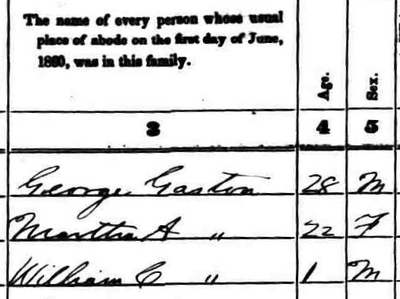 The name of every person whose usual
place of abode on the first day of June,
1860, was in this family.
Age.
Sex.
3 4 5
George Gaston 28 M
Martha A " 22 F
William C " 1 M